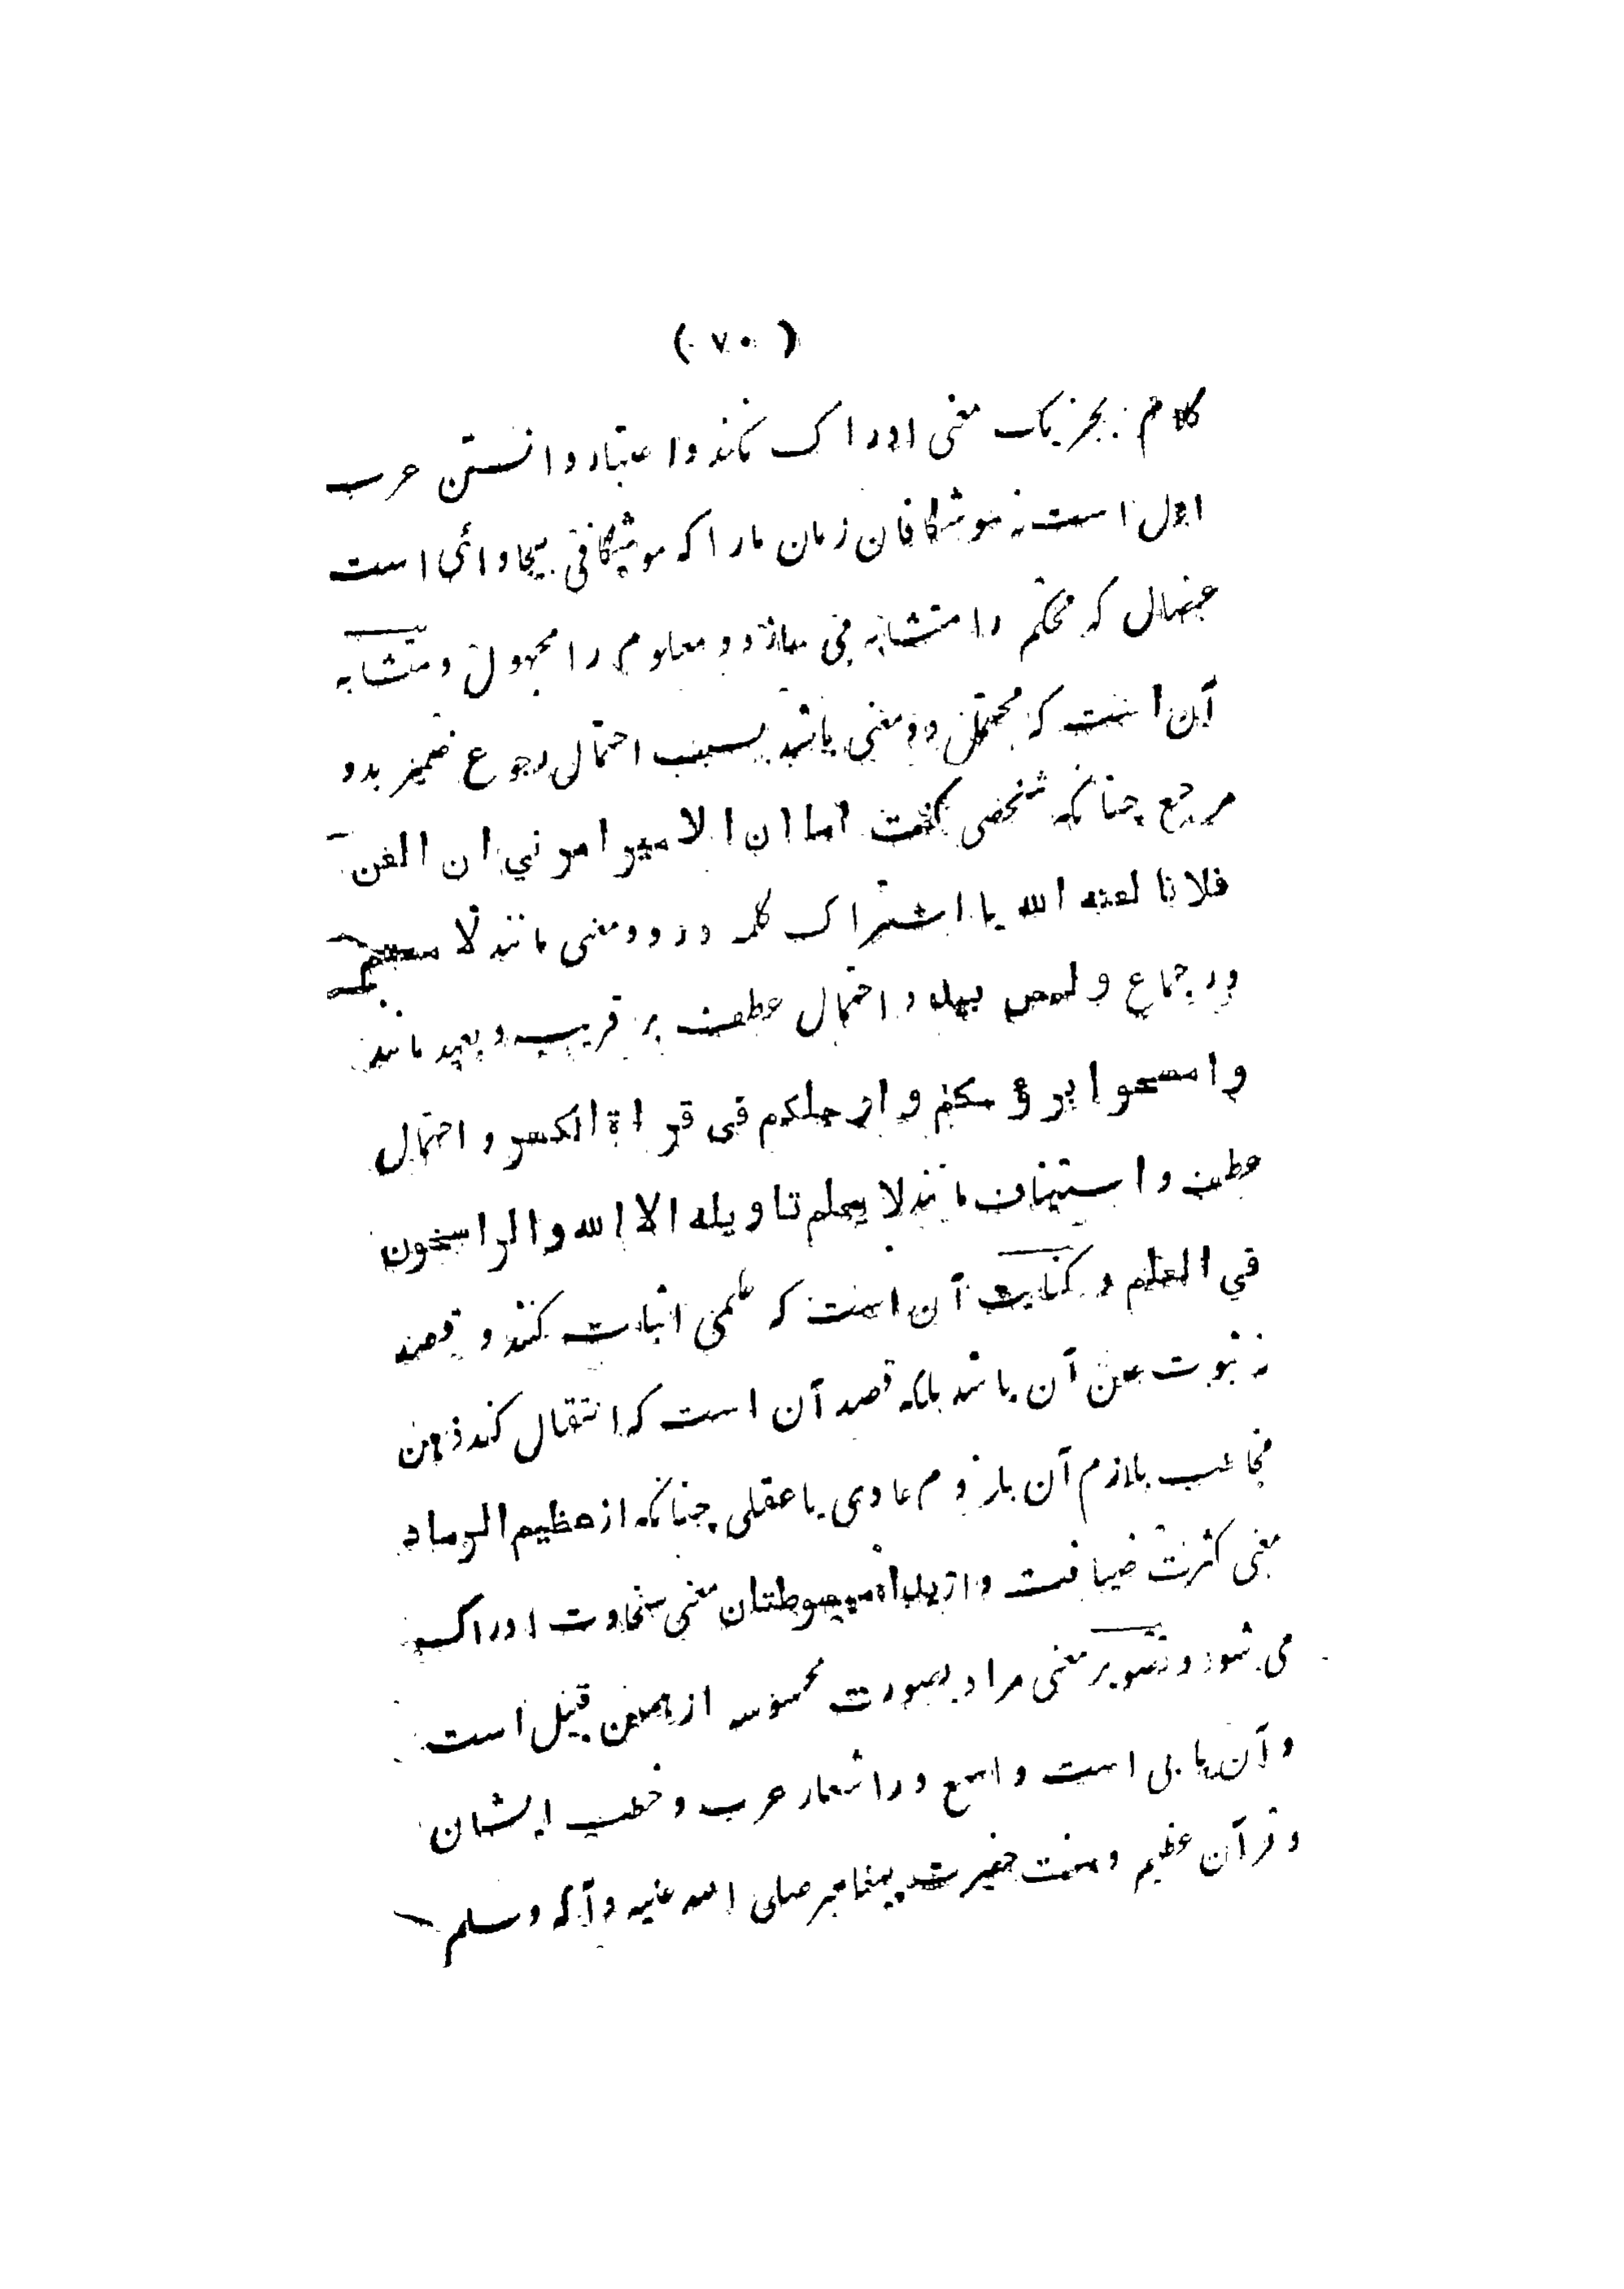 ( ٧٠ )
کلام بجز یک معنی ادراک نکند و اعتبار دانستن عرب
اول است نه موشگافان زمان ما را که موشگافی بیجا دائی است
عضال که محکم را متشابه می سازد و معلوم را مجهول و متشابه
آن است که محتمل دو معنی باشد بسبب احتمال رجوع ضمیر بدو
مرجع چنانکه شخصی گفت اما ان الامیر امرنی ان العن
فلانا لعنه الله یا اشتراک کلمه در دو معنی مانند لامستم
در جماع و لمس بید و احتمال عطف بر قریب و بعید مانند
وامسحوا برؤسکم وارجلکم فی قراة الکسر و احتمال
عطف و استیناف مانند لا یعلم تاویله الا الله والراسخون
في العلم و کنایت آن است که حکمی اثبات کنند و قصد
نه ثبوت عین آن باشد بلکه قصد آن است که انتقال کند ذهن
مخاطب بلازم آن بلزوم عادی یا عقلی چنانکه از عظیم الرماد
معنی کثرت ضیافت و از یداه مبسوطتان معنی سخاوت ادراک
می شود و تصویر معنی مراد بصورت محسوسه از همین قبیل است
و آن بابی است واسع در اشعار عرب و خطب ایشان
و قرآن عظیم و سنت حضرت پیغامبر صلی الله علیه و آله وسلم